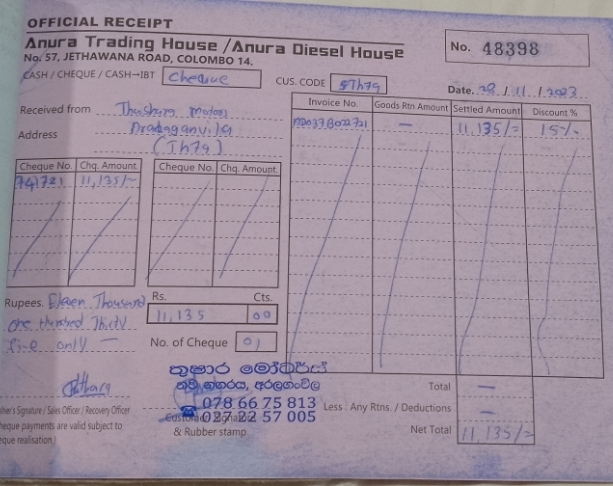 OFFICIAL RECEIPT
Anura Trading House / Anura Diesel House
No. 57, JETHAWANA ROAD, COLOMBO 14.
No. 48398
CASH / CHEQUE / CASH→IBT Cheque
CUS. CODE
Date. 29/11/2023
Received from Thushara Motors
Address Aralaganwila
(Th79)
Invoice No. Goods Rtn Amount Settled Amount Discount %
— 11,135/= 15%
Cheque No. Chq. Amount Cheque No. Chq. Amount
741721 11,135/=
Rupees. Eleven Thousand
one Hundred Thirty
five only —
Rs. Cts.
11,135 00
No. of Cheque 01
තුෂාර මෝටර්ස්
නව නගරය, අරලගංවිල
078 66 75 813
027 22 57 005
Signature / Sales Officer / Recovery Officer
cheque payments are valid subject to
cheque realisation.)
& Rubber stamp
Total —
Less : Any Rtns. / Deductions —
Net Total 11,135/=